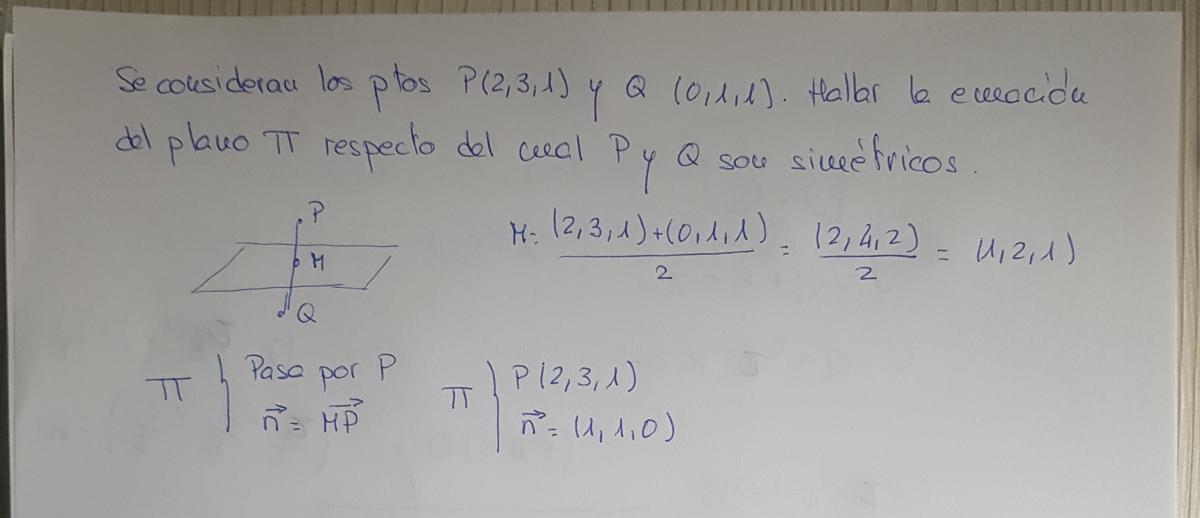 Se consideran los ptos P(2,3,1) y Q (0,1,1). Hallar la ecuación
del plano π respecto del cual P y Q son simétricos.
P
M
Q
M = (2,3,1)+(0,1,1) / 2 = (2,4,2) / 2 = (1,2,1)
π } Pasa por P
n⃗ = MP⃗
π } P(2,3,1)
n⃗ = (1,1,0)